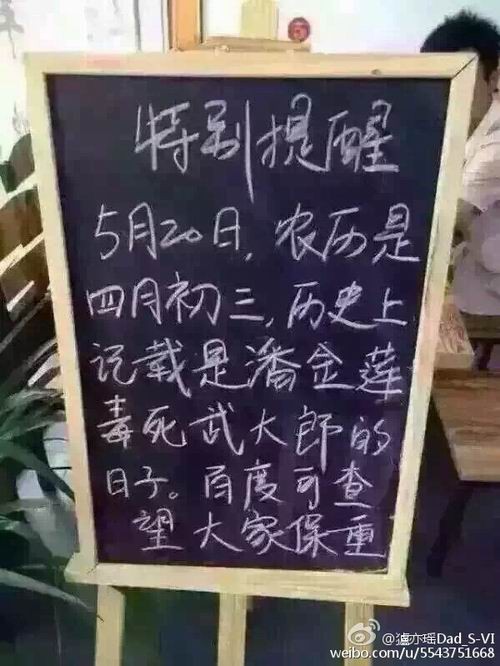 特别提醒
5月20日,农历是
四月初三,历史上
记载是潘金莲
毒死武大郎的
日子。百度可查
望大家保重
@滤亦瑶Dad_S-VI
weibo.com/u/5543751668